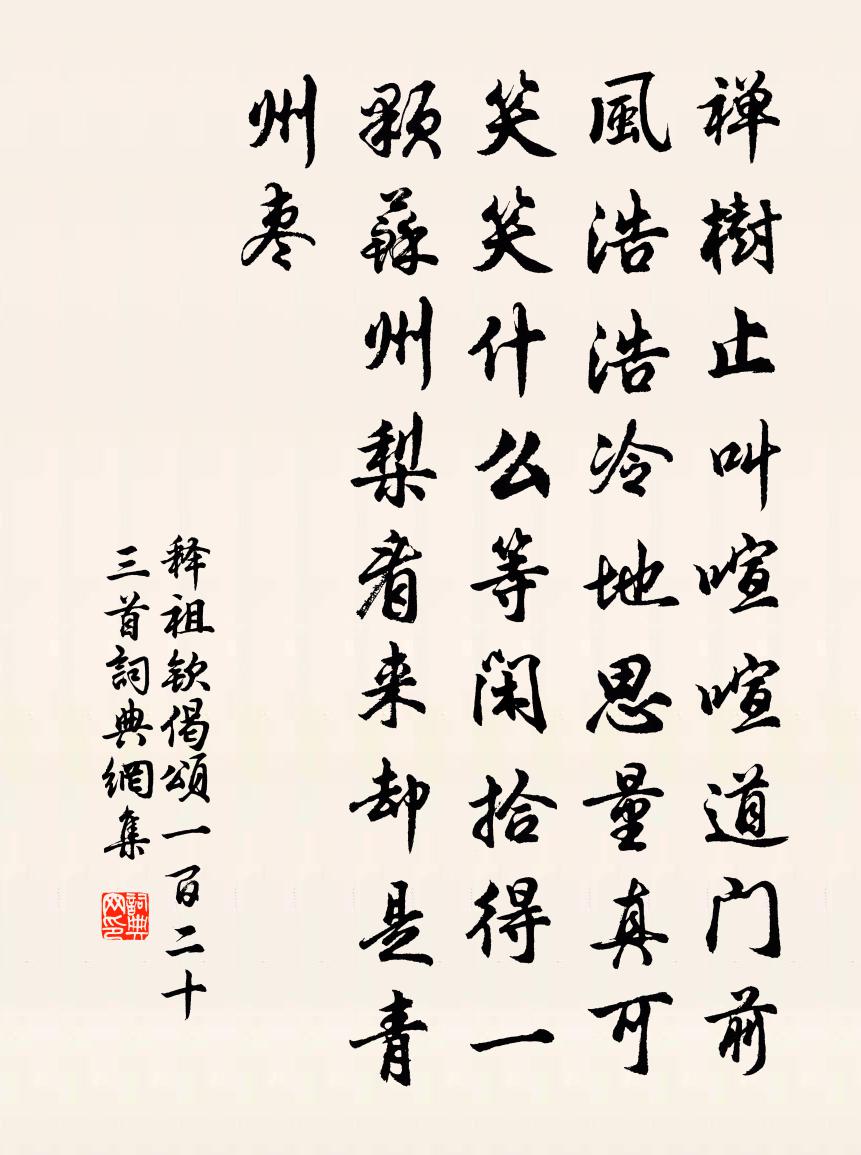 禅樹止叫喧喧道门前
風浩浩冷地思量真可
笑笑什么等闲拾得一
顆蘇州梨看来却是青
州枣
释祖欽偈頌一百二十
三首詞典網集
詞典网印